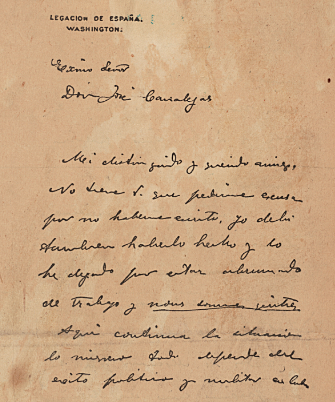 LEGACION DE ESPAÑA.
WASHINGTON.
Excmo Señor
Don José Canalejas
Mi distinguido y querido amigo:
No tiene V. que pedirme excusa
por no haberme escrito, yo debí
tambien haberlo hecho y lo
he dejado por estar abrumado
de trabajo y nous sommes quittes
Aquí continua la situacion
lo mismo todo depende del
exito politico y militar en Cuba